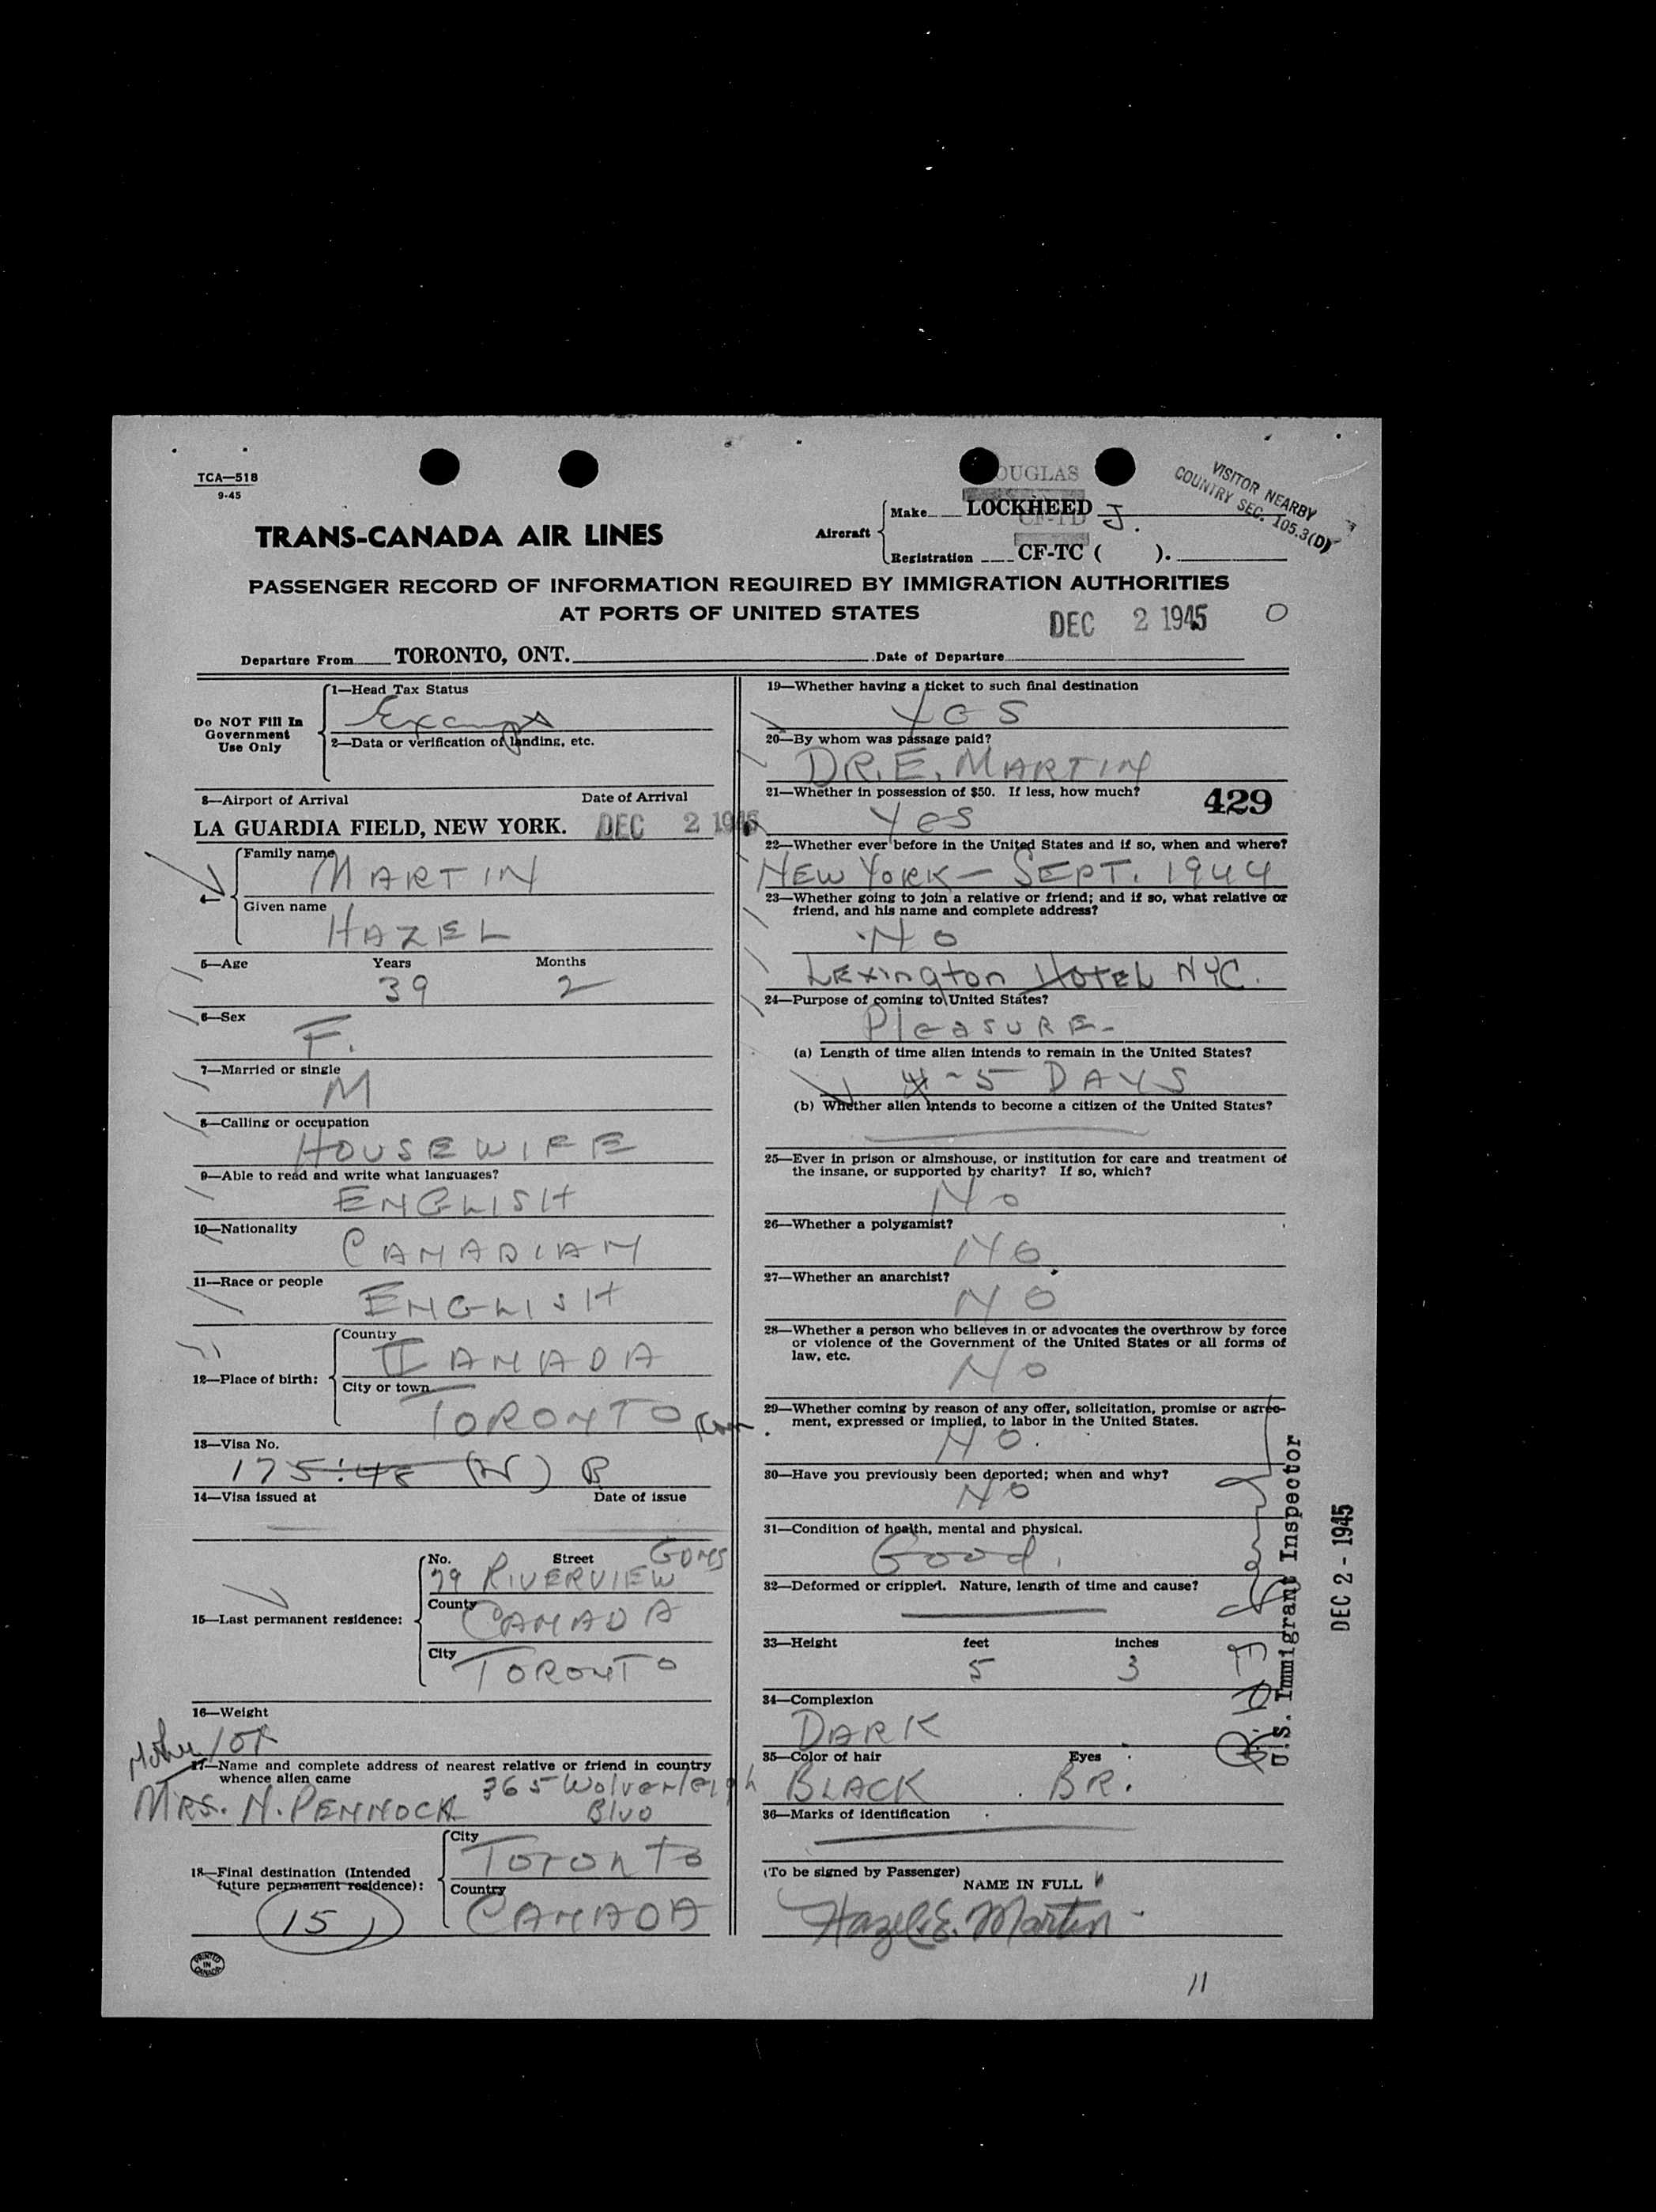 TCA—518
9-45
OUGLAS
VISITOR NEARBY
COUNTRY SEC. 105.3(D)
TRANS-CANADA AIR LINES
Aircraft
Make LOCKHEED J.
CF-TD
Registration CF-TC ( ).
PASSENGER RECORD OF INFORMATION REQUIRED BY IMMIGRATION AUTHORITIES
AT PORTS OF UNITED STATES
DEC 2 1945 O
Departure From TORONTO, ONT. Date of Departure
Do NOT Fill In
Government
Use Only
1—Head Tax Status
Exempt
2—Data or verification of landing, etc.
3—Airport of Arrival Date of Arrival
LA GUARDIA FIELD, NEW YORK. DEC 2 1945
4—
Family name
MARTIN
Given name
HAZEL
5—Age Years Months
39 2
6—Sex
F.
7—Married or single
M
8—Calling or occupation
HOUSEWIFE
9—Able to read and write what languages?
ENGLISH
10—Nationality
CANADIAN
11—Race or people
ENGLISH
12—Place of birth:
Country
CANADA
City or town
TORONTO
13—Visa No.
175.45 (N) B
14—Visa issued at Date of issue
15—Last permanent residence:
No. Street GDNS
79 RIVERVIEW
County
CANADA
City
TORONTO
16—Weight
Mother
17—Name and complete address of nearest relative or friend in country
whence alien came
365 Wolverleigh
MRS. N. PENNOCK BLVD
18—Final destination (Intended
future permanent residence):
City
Toronto
Country
CANADA
15
PRINTED
IN
CANADA
19—Whether having a ticket to such final destination
YES
20—By whom was passage paid?
DR. E. MARTIN
21—Whether in possession of $50. If less, how much?
429
Yes
22—Whether ever before in the United States and if so, when and where?
NEW YORK — SEPT. 1944
23—Whether going to join a relative or friend; and if so, what relative or
friend, and his name and complete address?
NO
LExington HOTEL NYC.
24—Purpose of coming to United States?
PleasURE-
(a) Length of time alien intends to remain in the United States?
4-5 DAYS
(b) Whether alien intends to become a citizen of the United States?
25—Ever in prison or almshouse, or institution for care and treatment of
the insane, or supported by charity? If so, which?
No
26—Whether a polygamist?
NO
27—Whether an anarchist?
NO
28—Whether a person who believes in or advocates the overthrow by force
or violence of the Government of the United States or all forms of
law, etc.
No
29—Whether coming by reason of any offer, solicitation, promise or agree-
ment, expressed or implied, to labor in the United States.
NO.
30—Have you previously been deported; when and why?
NO
31—Condition of health, mental and physical.
Good.
32—Deformed or crippled. Nature, length of time and cause?
33—Height feet inches
5 3
34—Complexion
DARK
35—Color of hair Eyes
BLACK BR.
36—Marks of identification
(To be signed by Passenger)
NAME IN FULL
Hazel E. Martin
11
U.S. Immigrant Inspector
DEC 2 - 1945